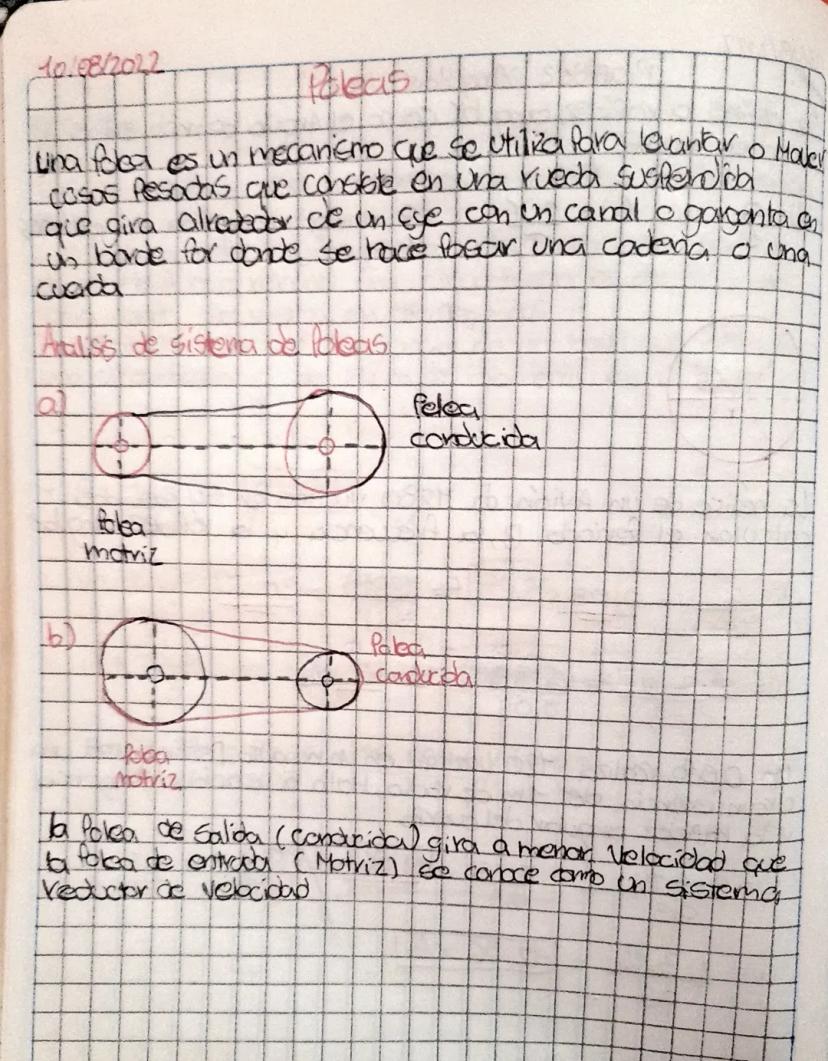 10/08/2022
Poleas
Una Polea es un mecanismo que se utiliza Para levantar o Mover
cosas Pesadas que consiste en una rueda suspendida
que gira alrededor de un eje con un canal o garganta en
un borde por donde se hace Pasar una cadena o una
cuerda
Analisis de sistema de Poleas
a)
Polea
conducida
Polea
motriz
b)
Polea
conducida
Polea
Motriz
la Polea de salida (conducida) gira a menor Velocidad que
la Polea de entrada (Motriz) se conoce como un sistema
reductor de velocidad